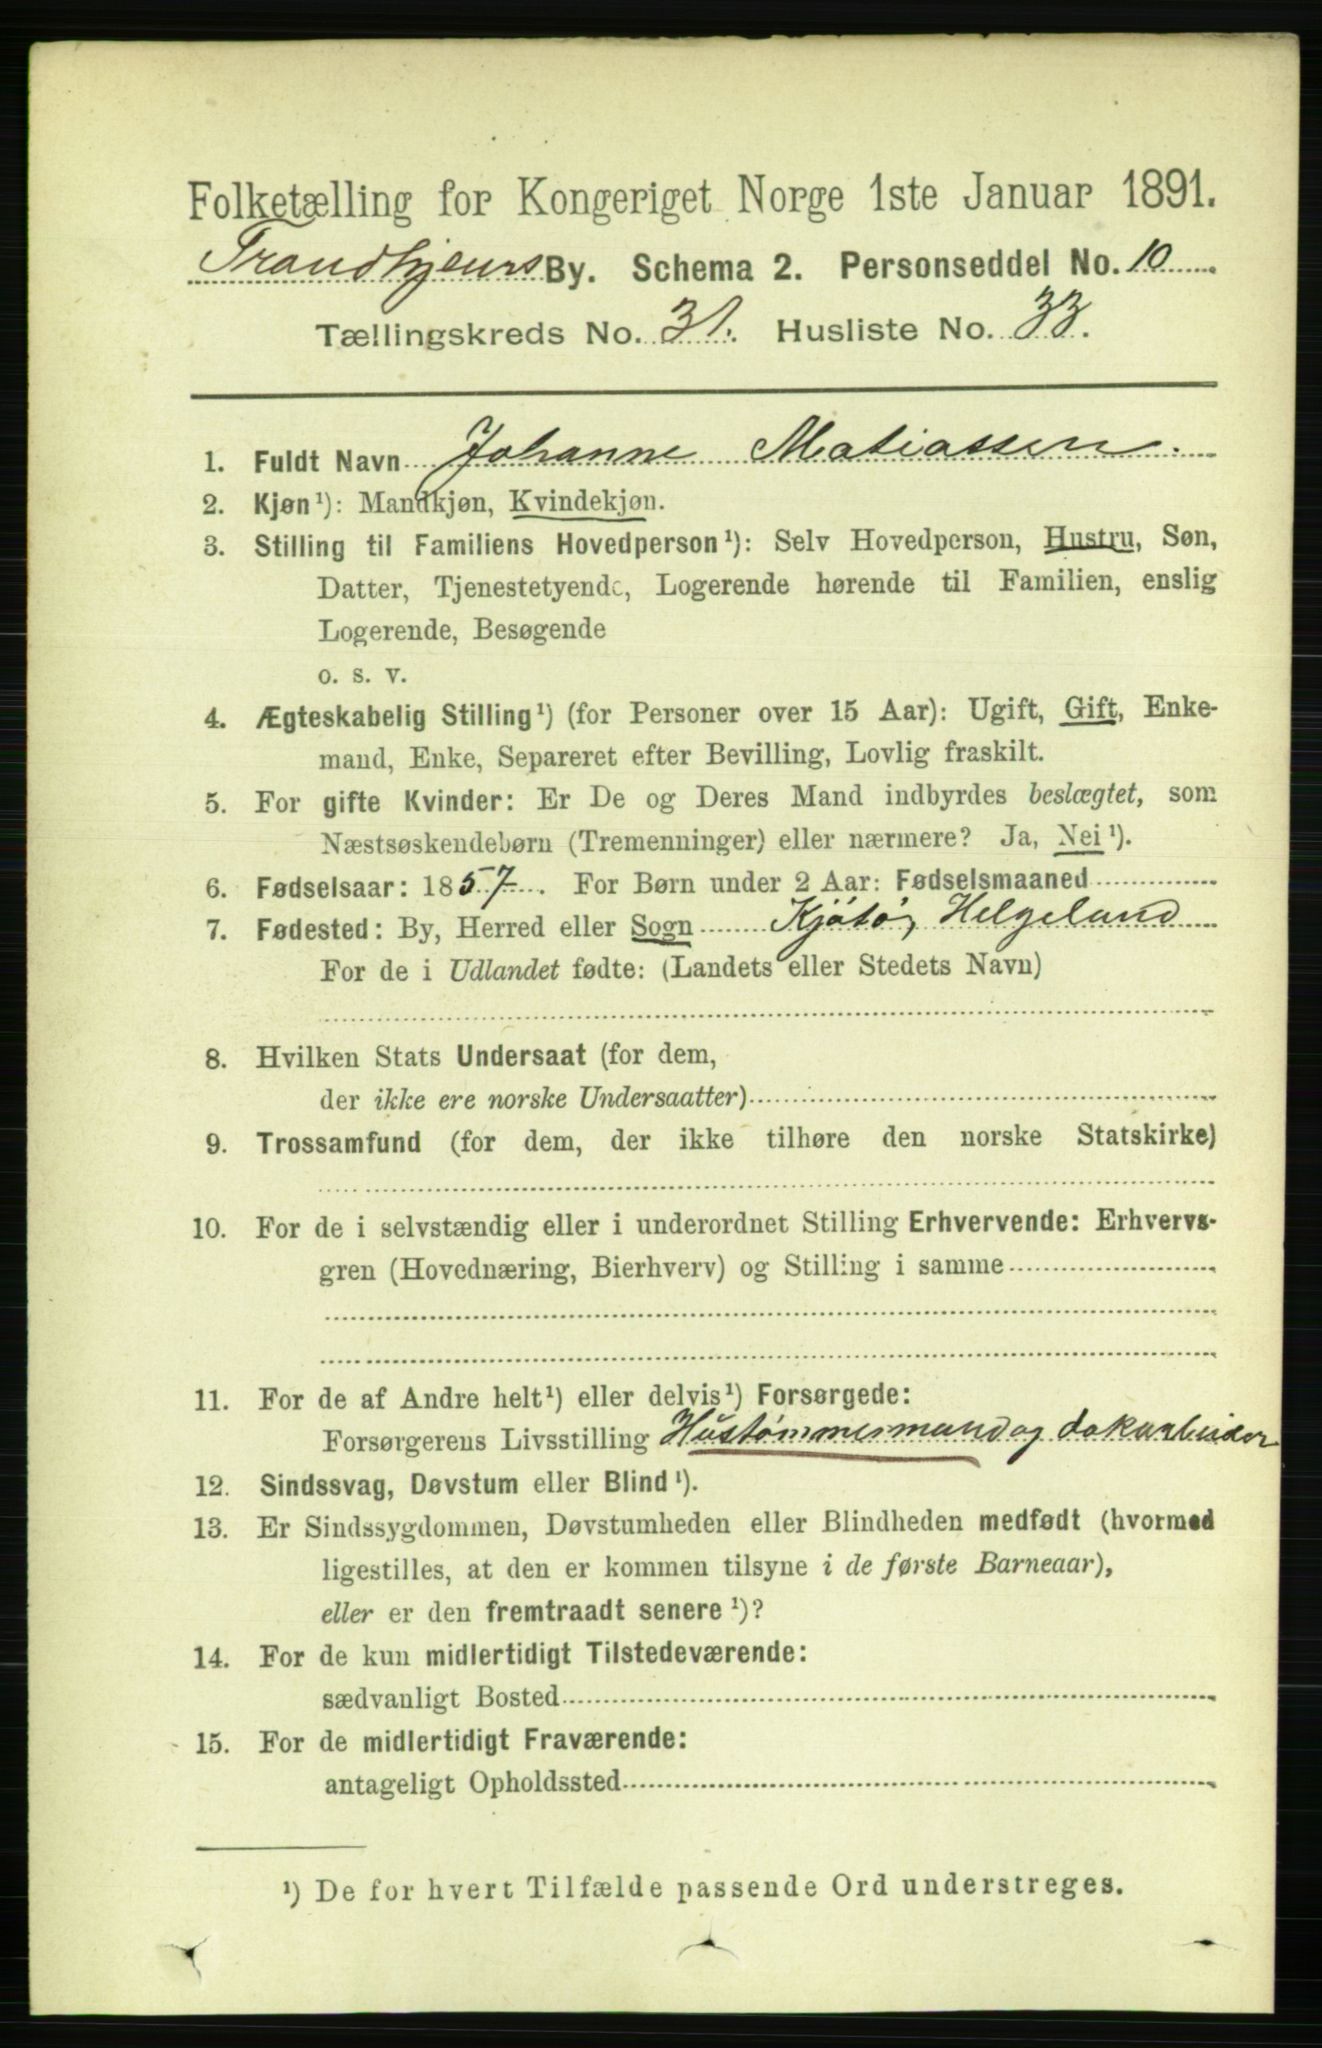 Folketælling for Kongeriget Norge 1ste Januar 1891.
Trondhjems By. Schema 2. Personseddel No. 10
Tællingskreds No. 31. Husliste No. 33.
1. Fuldt Navn Johanne Matiassen.
2. Kjøn¹): Mandkjøn, Kvindekjøn.
3. Stilling til Familiens Hovedperson¹): Selv Hovedperson, Hustru, Søn,
Datter, Tjenestetyende, Logerende hørende til Familien, enslig
Logerende, Besøgende
o. s. v.
4. Ægteskabelig Stilling¹) (for Personer over 15 Aar): Ugift, Gift, Enke-
mand, Enke, Separeret efter Bevilling, Lovlig fraskilt.
5. For gifte Kvinder: Er De og Deres Mand indbyrdes beslægtet, som
Næstsøskendebørn (Tremenninger) eller nærmere? Ja, Nei¹).
6. Fødselsaar: 1857. For Børn under 2 Aar: Fødselsmaaned
7. Fødested: By, Herred eller Sogn Kjøtø, Helgeland
For de i Udlandet fødte: (Landets eller Stedets Navn)
8. Hvilken Stats Undersaat (for dem,
der ikke ere norske Undersaatter)
9. Trossamfund (for dem, der ikke tilhøre den norske Statskirke)
10. For de i selvstændig eller i underordnet Stilling Erhvervende: Erhvervs-
gren (Hovednæring, Bierhverv) og Stilling i samme
11. For de af Andre helt¹) eller delvis¹) Forsørgede:
Forsørgerens Livsstilling Hustømmermand og dokarbeider
12. Sindssvag, Døvstum eller Blind¹).
13. Er Sindssygdommen, Døvstumheden eller Blindheden medfødt (hvormed
ligestilles, at den er kommen tilsyne i de første Barneaar),
eller er den fremtraadt senere¹)?
14. For de kun midlertidigt Tilstedeværende:
sædvanligt Bosted
15. For de midlertidigt Fraværende:
antageligt Opholdssted
¹) De for hvert Tilfælde passende Ord understreges.